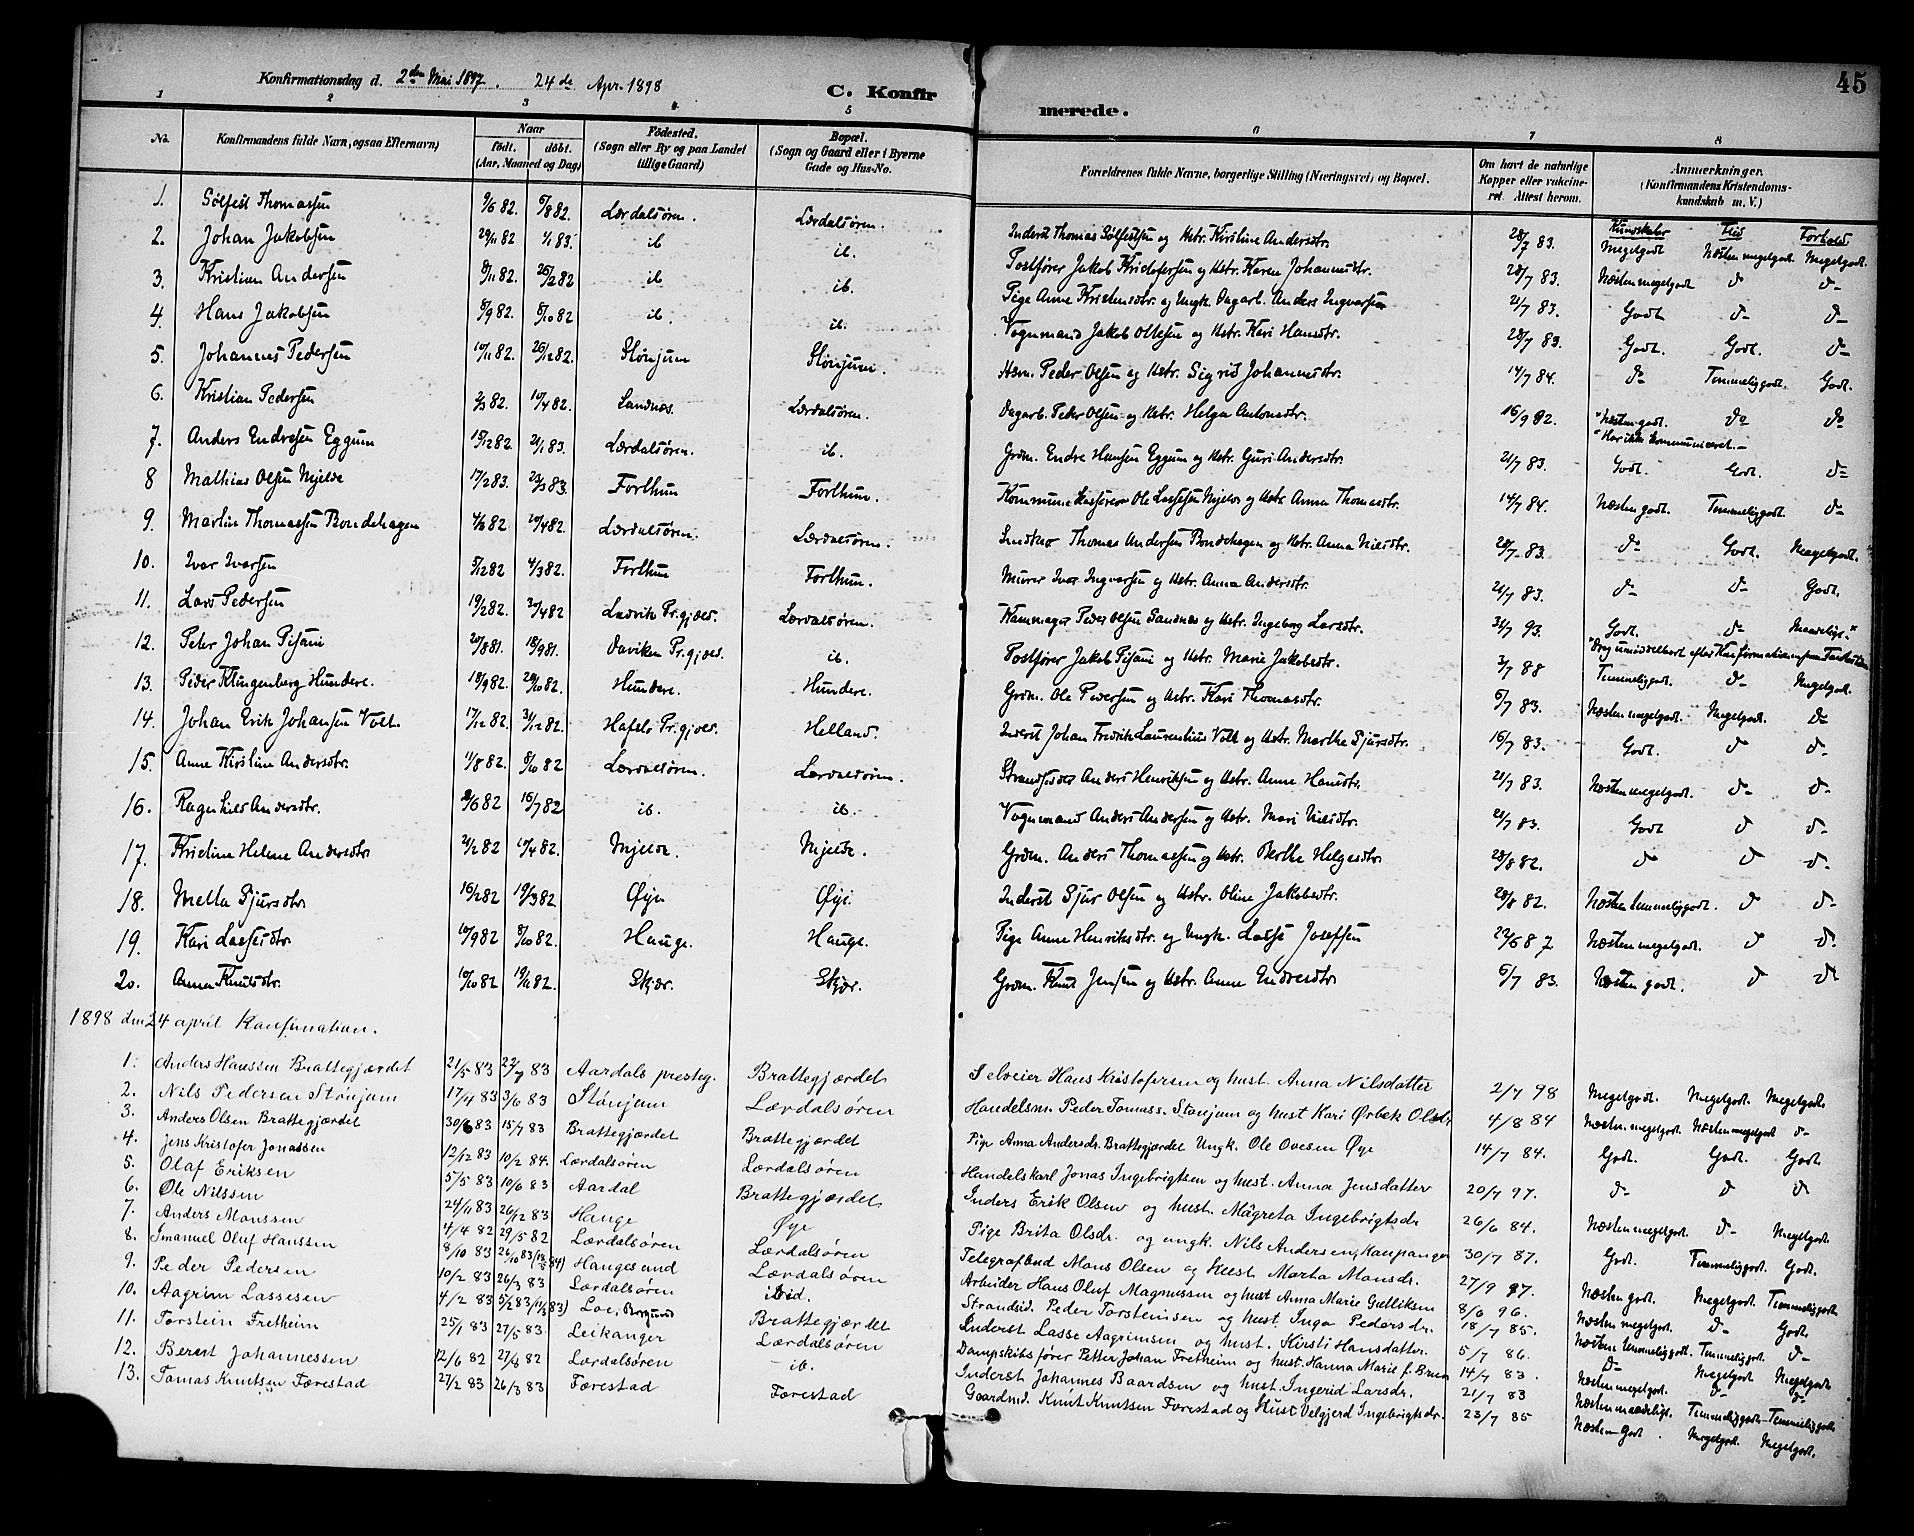 45
Konfirmationsdag d. 2den Mai 1897. 24de Apr. 1898
C. Konfirmerede.
1 2 3 4 5 6 7 8
No. Konfirmandens fulde Navn, ogsaa Efternavn) Naar födt. döbt. (Aar, Maaned og Dag) Födested. (Sogn eller By og paa Landet tillige Gaard) Bopæl. (Sogn og Gaard eller i Byerne Gade og Hus-No. Forældrenes fulde Navne, borgerlige Stilling (Næringsvei) og Bopæl. Om havt de naturlige Kopper eller vakcineret. Attest herom. Anmærkninger. (Konfirmandens Kristendomskundskab m. V.)
Kundskaber Flid Forhold
1. Sölfest Thomassen 9/6 82. 6/8 82. Lærdalsören. Lærdalsören. Inderst Thomas Sölfestsen og Hstr. Kirstine Andersdtr. 28/7 83. Megetgodt Næsten megetgodt Megetgodt.
2. Johan Jakobsen 29/11 82 1/1 83. ib ib. Postförer Jakob Kristofersen og Hstr. Karen Johannesdtr. 28/7 83. Næsten megetgodt d- d-
3. Kristian Andersen 9/11 82. 26/12 82 ib ib. Pige Anne Kristensdtr. og Ungk. Dagarb. Anders Ingvarsen 21/7 83. Godt d- d-
4. Hans Jakobsen 5/9 82. 8/10 82 ib. ib. Vognmand Jakob Olsen og Hstr. Kari Hansdtr. 28/7 83. Godt. Godt. d-
5. Johannes Pedersen 10/11 82. 26/12 82. Stönjum Stönjum. Hsm. Peder Olsen og Hstr. Sigrid Johannesdtr. 14/7 84. d- Temmeliggodt. Godt.
6. Kristian Pedersen 2/3 82. 10/4 82. Sandnæs. Lærdalsören. Dagarb. Peder Olsen og Hstr. Helga Antonsdtr. 16/9 92. "Næsten godt. do do
"Har ikke kommuniceret.-
7. Anders Endresen Eggum 15/12 82 21/1 83. Lærdalsören. ib. Grdm. Endre Hansen Eggum og Hstr. Guri Andersdtr. 21/7 83. Godt. Godt. d-
8 Mathias Olsen Mjelde 17/2 83. 23/3 83. Forthun Forthun. Kommunekasserer Ole Lassesen Mjelde og Hstr. Anna Thomasdtr. 14/7 84. Næsten godt. Temmeliggodt. d-
9. Martin Thomassen Bondehagen 4/3 82 10/4 82. Lærdalsören. Lærdalsören. Snedker Thomas Andersen Bondehagen og Hstr. Anna Nilsdtr. 28/7 83. d- Godt. Megetgodt.
10. Ivar Ivarsen 5/12 82 4/3 82. Forthun Forthun. Murer Ivar Ingvarsen og Hstr. Anna Andersdtr. 21/7 83. d- d- Godt.
11. Lars Pedersen 19/2 82. 30/4 82 Ladvik Pr.gjæld. Lærdalsören. Kammager Peder Olsen Sandnæs og Hstr. Ingeborg Larsdtr. 31/7 93. Godt. d- Maadeligt."
"Drog umiddelbart efter Konfirmationen fra Forholden
12. Peter Johan Pisani 20/8 81. 18/9 81. Daviken Pr.gjæld. ib. Postförer Jakob Pisani og Hstr. Marie Jakobsdtr. 3/7 88 Temmeliggodt. d- Megetgodt.
13. Peder Klingenberg Hundere. 19/9 82. 29/10 82. Hundere. Hundere. Grdm. Ole Pedersen og Hstr. Kari Thomasdtr. 5/7 83. Næsten megetgodt. Megetgodt. d-
14. Johan Erik Johansen Volt. 17/12 82. 31/12 82. Hafslo Pr.gjæld. Helland. Inderst Johan Fredrik Laurentius Volt og Hstr. Marthe Sjursdtr. 16/7 83. Godt. d d-
15. Anne Kirstine Andersdtr. 11/8 82. 8/10 82 Lærdalsören. Lærdalsören. Strandsidder Anders Henriksen og Hstr. Anne Hansdtr. 21/7 83. Næsten megetgodt. d- d-
16. Ragnhild Andersdtr. 2/6 82 16/7 82 ib. ib. Vognmand Anders Andersen og Hstr. Mari Nilsdtr. 21/7 83. Godt d d-
17. Kristine Helene Andersdtr 21/2 82 10/4 82. Mjelde. Mjelde. Grdm. Anders Thomassen og Hstr. Berthe Helgesdtr. 28/8 82. d d d-
18. Metta Sjursdtr. 16/2 82 19/3 82. Øye Øye. Inderst Sjur Olsen og Hstr. Oline Jakobsdtr. 28/8 82. Næsten temmeliggodt. d d-
19. Kari Lassesdtr. 10/9 82 8/10 82. Hauge. Hauge. Pige Anne Henriksdtr. og Ungk. Lasse Josefsen 22/6 87 Næsten megetgodt. d d-
20. Anna Knutsdtr. 10/10 82 19/11 82. Skjær. Skjær. Grdm. Knut Jensen og Hstr. Anne Endresdtr. 5/7 83. Næsten godt. d d-
1898 den 24 april Konfirmation.
1. Anders Hanssen Brattegjærdet 21/5 83 22/7 83 Aardals presteg. Brattegjærdet Selveier Hans Kristofersen og hust. Anna Nilsdatter 2/7 98 Megetgodt. Megetgodt. Megetgodt.
2. Nils Pedersen Stönjum 17/4 83 3/6 83 Stönjum Lærdalsören Handelsm. Peder Tomass. Stönjum og hust Kari Ørbek Olsdr 4/8 84 Næsten megetgodt. Næsten megetgodt d-
3. Anders Olsen Brattegjærdet 30/6 83 15/7 83 Brattegjærdet Brattegjærdet Pige Anna Andersdr. Brattegjærdet Ungk. Ole Ovesen Øye 14/7 84. Godt. Godt. Godt
4. Jens Kristofer Jonassen 12/12 83 10/2 84. Lærdalsören Lærdalsören Handelskarl Jonas Ingebrigtsen og hust. Anna Jensdatter 20/7 97. d- d d
5. Olaf Eriksen 5/5 83 10/6 83 Aardal Brattegjærdet Inders Erik Olsen og hust. Magreta Ingebrigtsdr 26/6 84. Næsten megetgodt. d- Megetgodt.
6. Ole Nilssen 24/11 83 26/12 83 Hauge Øye Pige Brita Olsdr. og ungk. Nils Andersen, Kaupanger 30/7 87. Godt. Temmeliggodt. Godt.
7. Anders Monssen 4/4 82 29/5 82 Lærdalsören Lærdalsören Telegrafbud Mons Olsen og Hust. Marta Monsdr. 27/9 97. Næsten godt. Megetgodt. Temmeliggodt
8. Imanuel Oluf Hanssen 8/10 83 26/10 83 Haugesund Lærdalsören Arbeider Hans Oluf Magnussen og hust Anna Marie Gulliksen 8/6 96. Næsten megetgodt. d- Godt.
9. Peder Pedersen 10/2 83 26/3 83 Lærdalsören ibid. Strandsid. Peder Torsteinsen og hust. Inga Pedersdr. 18/7 85. Næsten temmeliggodt. Temmeliggodt. d-
10. Aagrim Lassesen 4/2 83 5/2 83 Loe, Borgund Brattegjærdet Inderst Lasse Aagrimsen og hust. Kirsti Hansdatter 5/7 86. d- Megetgodt Megetgodt
11. Torstein Fretheim 25/1 83 27/5 83. Leikanger Lærdalsören Dampskibsförer Petter Johan Fretheim og hust. Hanna Marie f. Bruun 14/7 83. Næsten megetgodt. d- d-
12. Berent Johannessen 12/6 82 27/8 82 Lærdalsören - ib. Inderst Johannes Baardsen og hust. Ingerid Larsdr. 21/7 83 Næsten maadeligt. Temmeliggodt- Temmeliggodt
13. Tomas Knutsen Færestad 27/2 83 26/3 83 Færestad Færestad Gaardmd. Knut Knutssen Færestad og Hust Velgjerd Ingebrigtsdr. 23/7 85 Næsten Godt. Megetgodt. Megetgodt.